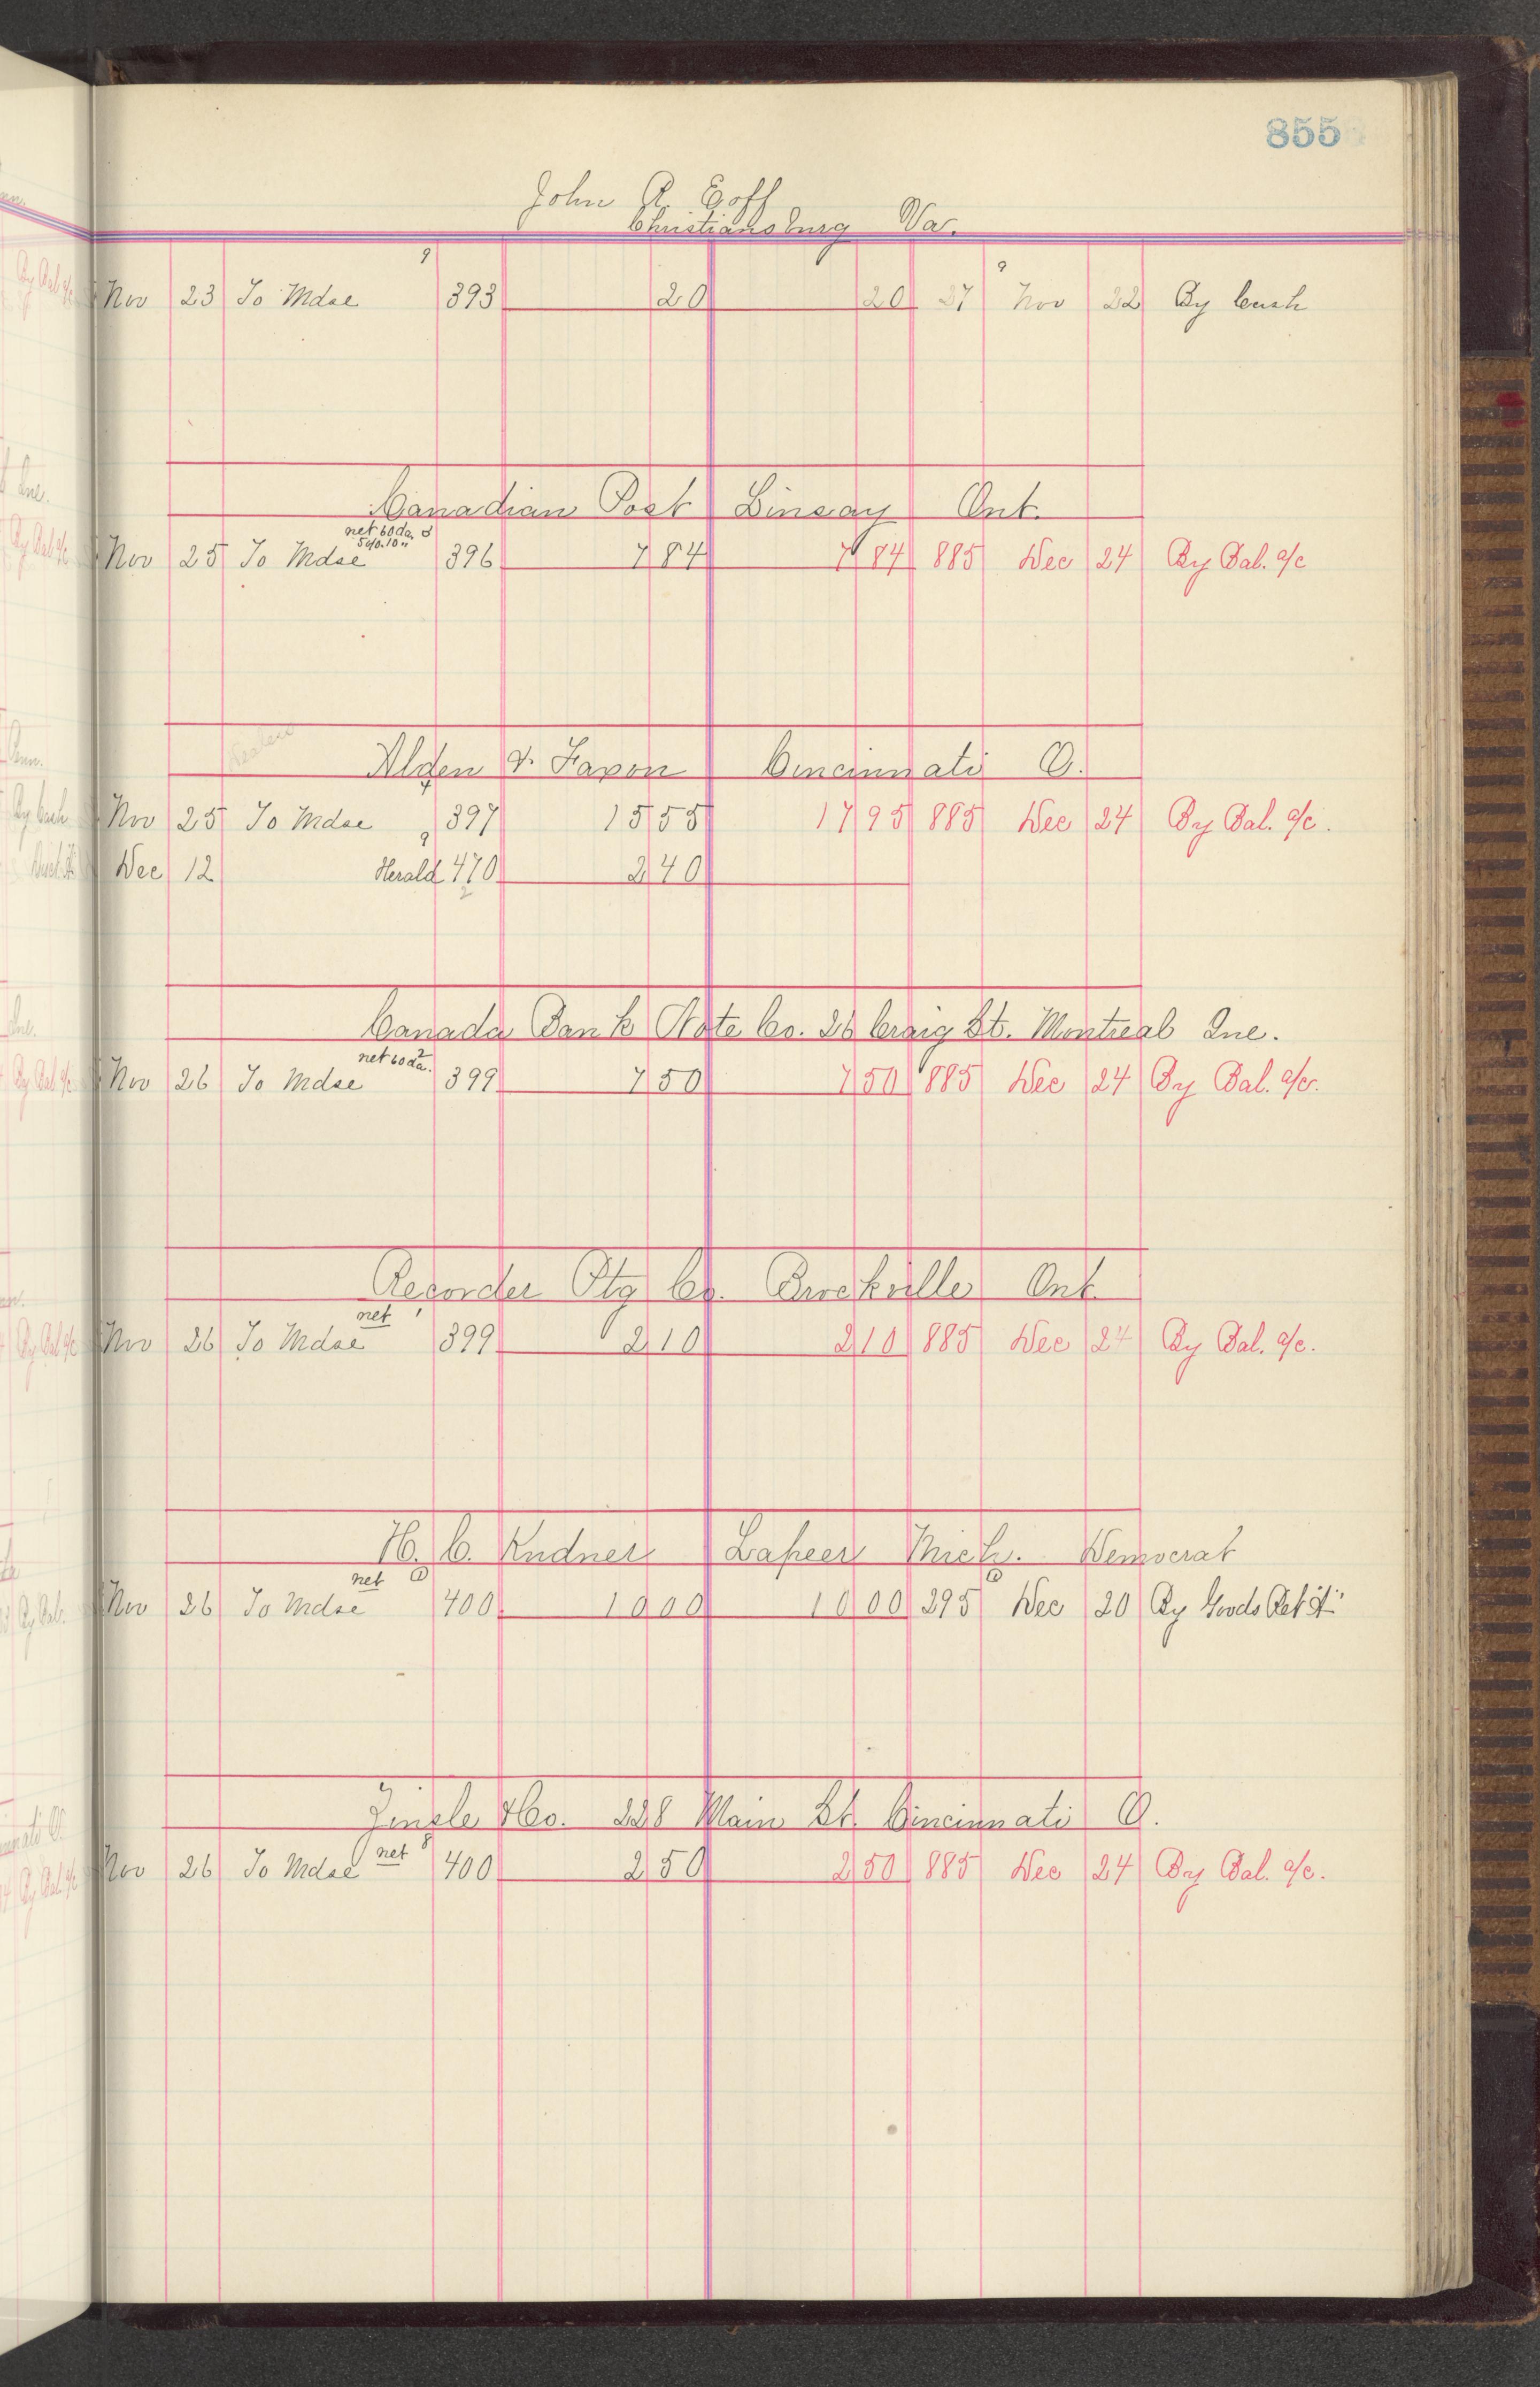 855
John R. Goff
Christiansburg Va.
9 9
Nov 23 To Mdse 393 20 20 27 Nov 22 By Cash
Canadian Post Linsay Ont.
net 60 da. 8
5% 10 "
Nov 25 To Mdse 396 7 84 7 84 885 Dec 24 By Bal. a/c
Alden & Faxon Cincinnati O.
Nov 25 To Mdse 397 15 55 17 95 885 Dec 24 By Bal. a/c.
9
Dec 12 Herald 470 2 40
2
Canada Bank Note Co. 26 Craig St. Montreal Que.
net 60 da. 2
Nov 26 To Mdse 399 7 50 7 50 885 Dec 24 By Bal. a/c.
Recorder Ptg Co. Brockville Ont.
net 1
Nov 26 To Mdse 399 2 10 2 10 885 Dec 24 By Bal. a/c.
H. C. Kudner Lapeer Mich. Democrat
net
Nov 26 To Mdse 400 10 00 10 00 295 Dec 20 By Goods Ret'd
& Co. 228 Main St. Cincinnati O.
net 8
Nov 26 To Mdse 400 2 50 2 50 885 Dec 24 By Bal. a/c.